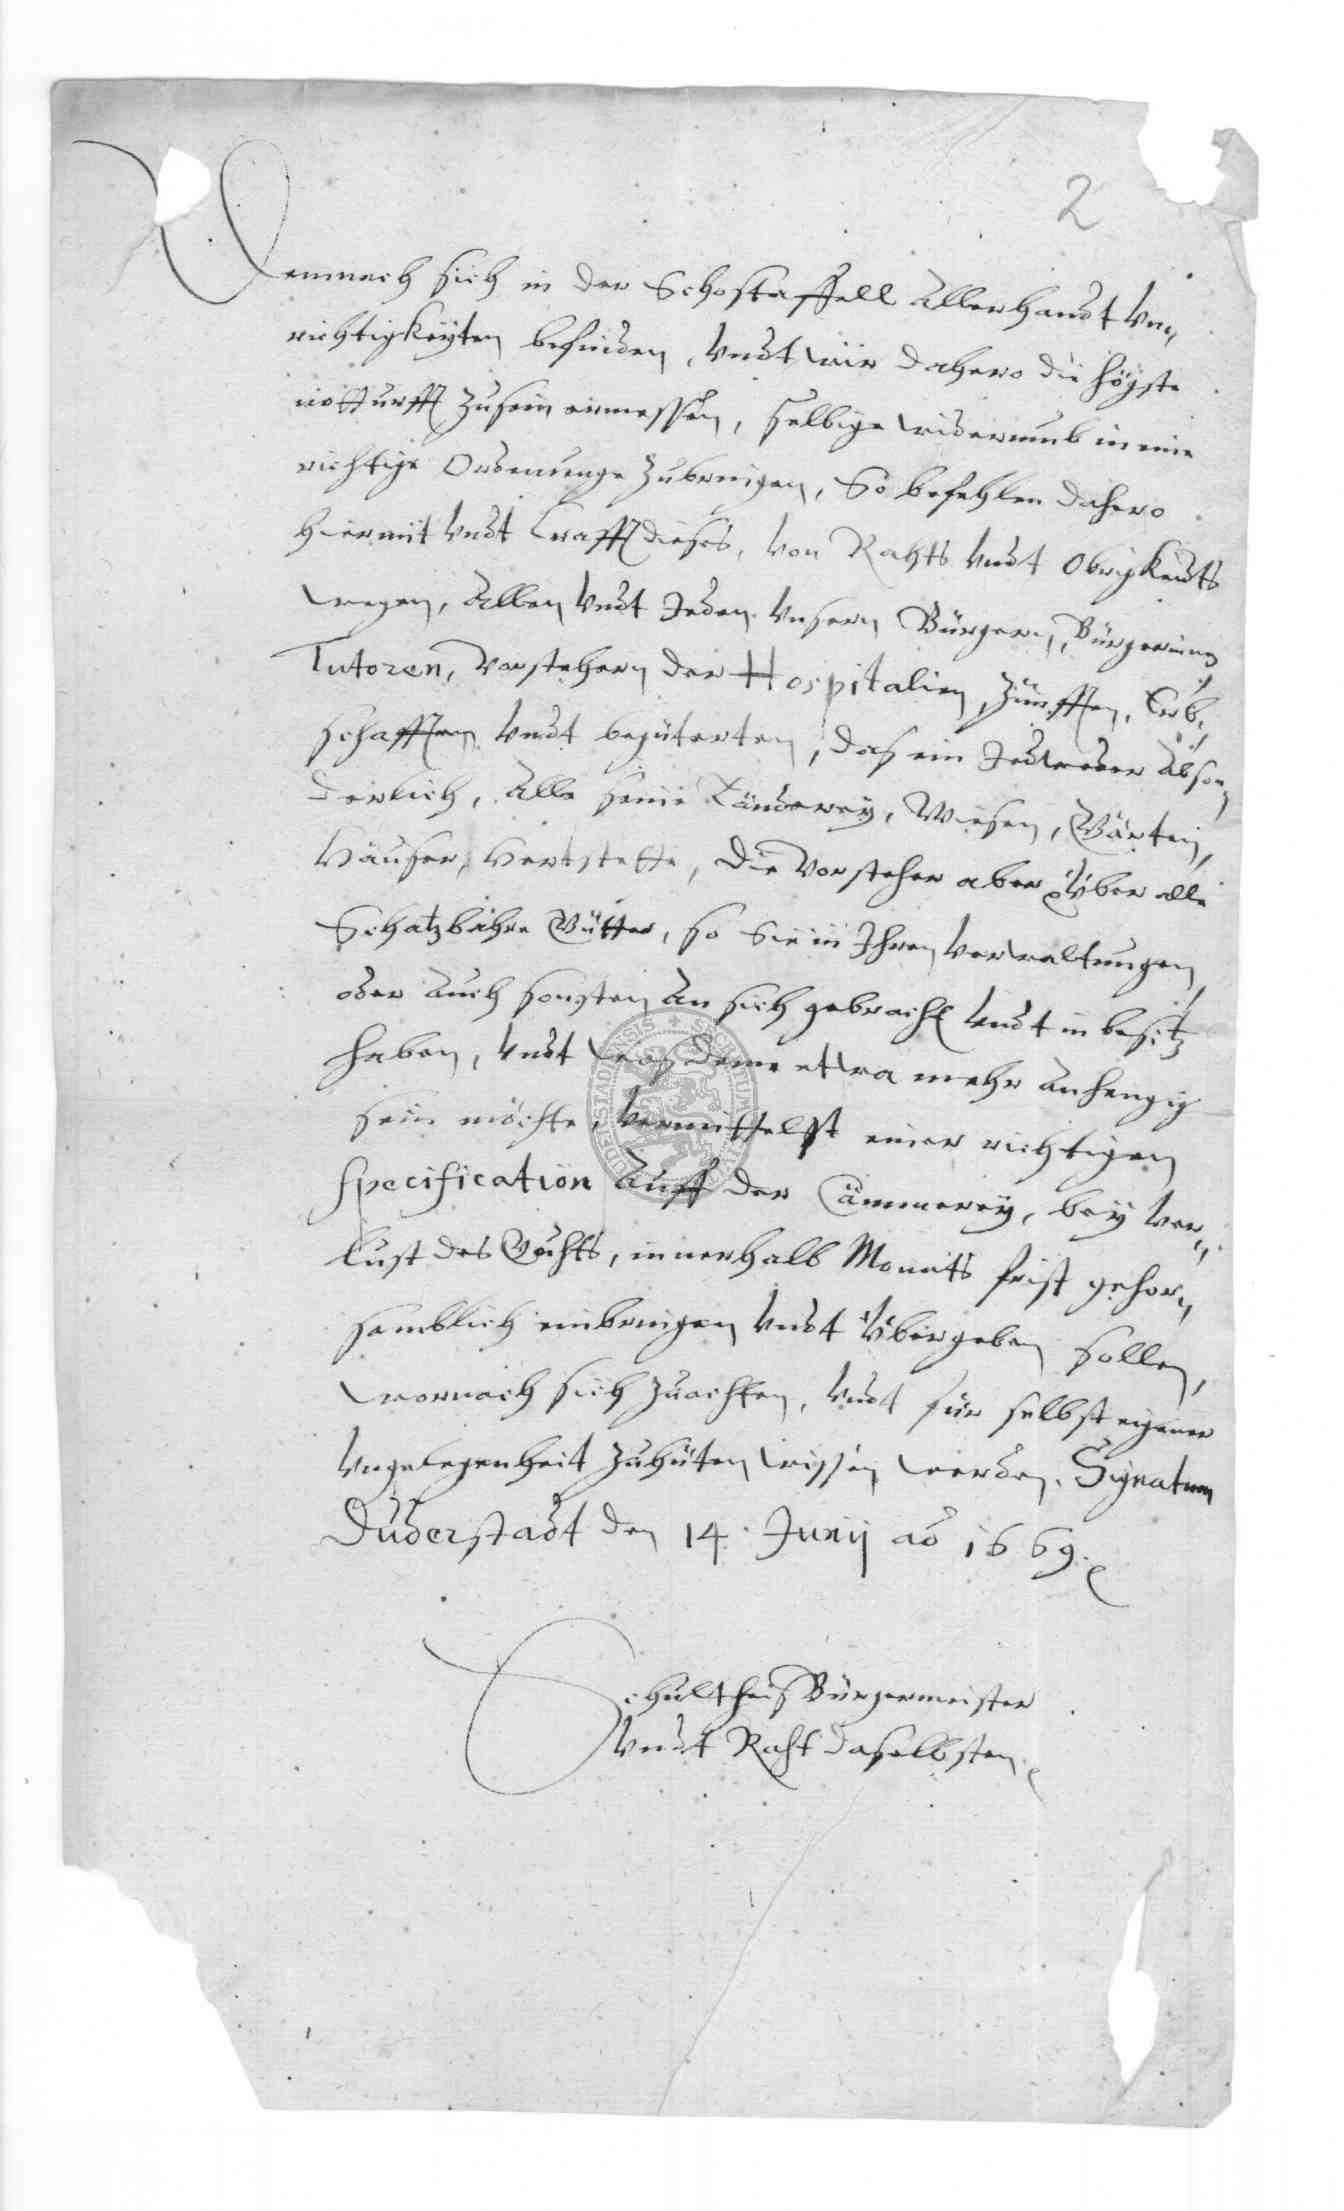 2
Demnach sich in der Schostaffell Allerhandt Vn„
richtigkeyten befinden, Vndt wir dahero die högste
notturfft zusein ermessen, selbige widerumb in eine
richtige Ordenunge zubringen, So befehlen dahero
hiermit Vndt Krafft dieses, Von Rahts Vndt Obrigkeidts
wegen, Allen Vndt Jeden Vnsern Bürgern, Bürgerinnen
Tutoren, Vorstehern der Hospitalien, Zünfften, Erb„
schafften Vndt begüterten, das ein Jedtweder Abson„
derlich, Alle seine Länderey, Wiesen, Gärten,
Häuser, Hertstette, die Vorsteher aber Über alle
Schatzbahre Gütter, so Sie in Ihren Verwaltungen
oder Auch sonsten An sich gebracht Vndt in besitz
haben, Vndt was deme etwa mehr Anhengig
sein möchte, Vermittelst einer richtigen
specification Auff der Cämmerey, bey Ver„
lust des Guhts, innerhalb Monats frist gehor„
samblich einbringen Vndt Übergeben sollen,
wornach sich zuachten, Vndt für selbst eigener
Vngelegenheit zuhüten wissen werden. Signatum
Duderstadt den 14. Junij ao 1669.
Schultheis Bürgermeister
Vndt Raht daselbsten.